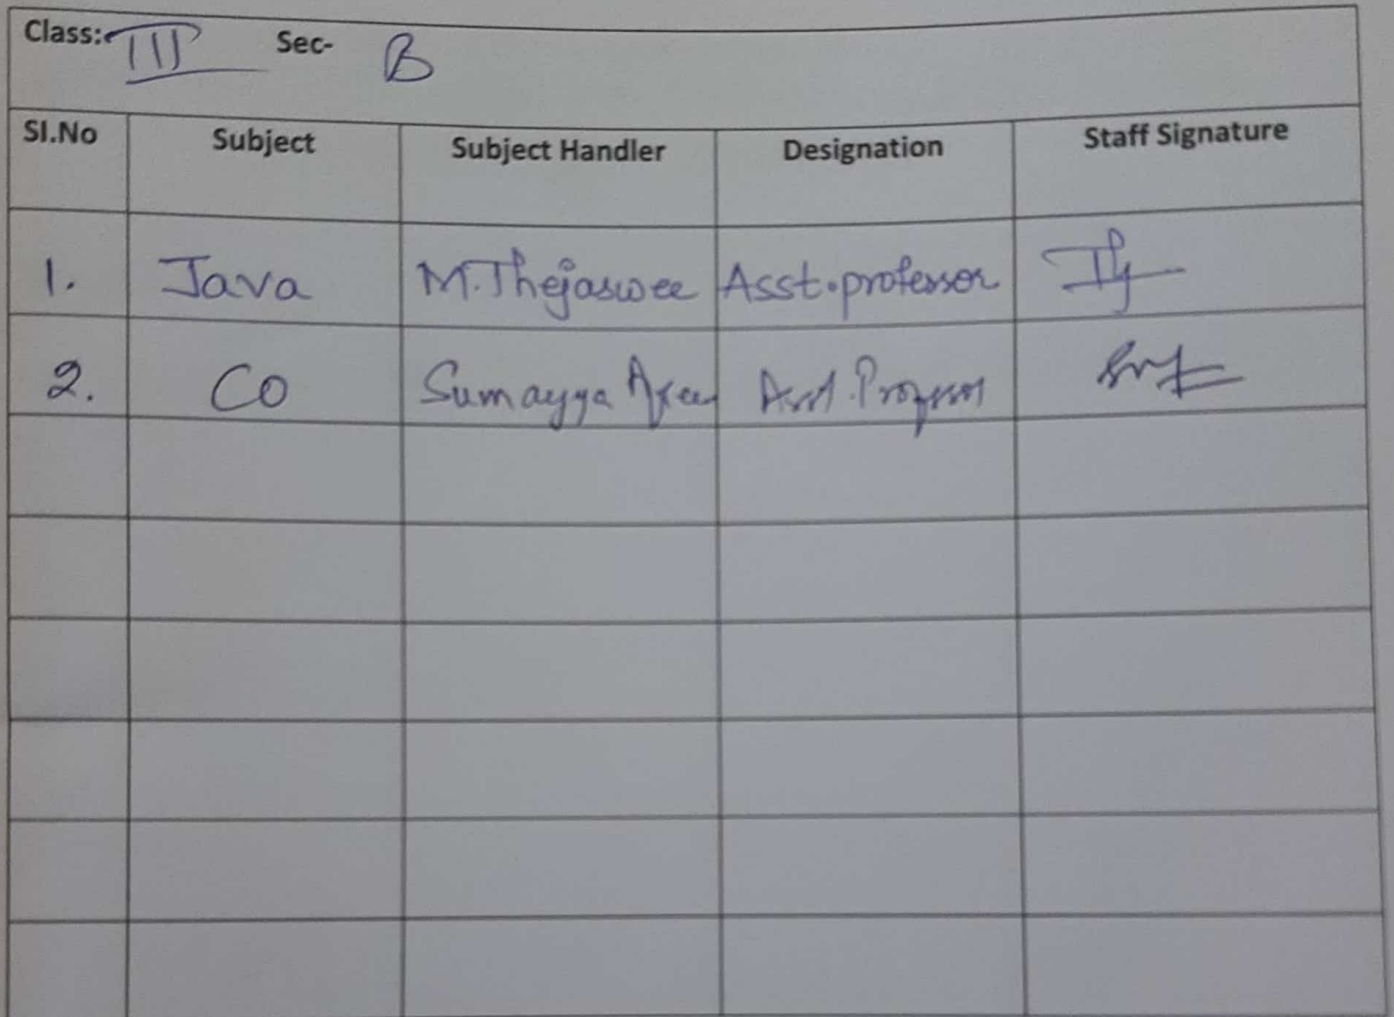 Class: III Sec- B
Sl.No Subject Subject Handler Designation Staff Signature
1. Java M. Thejaswee Asst. professor
2. CO Sumayya Asst. Professor